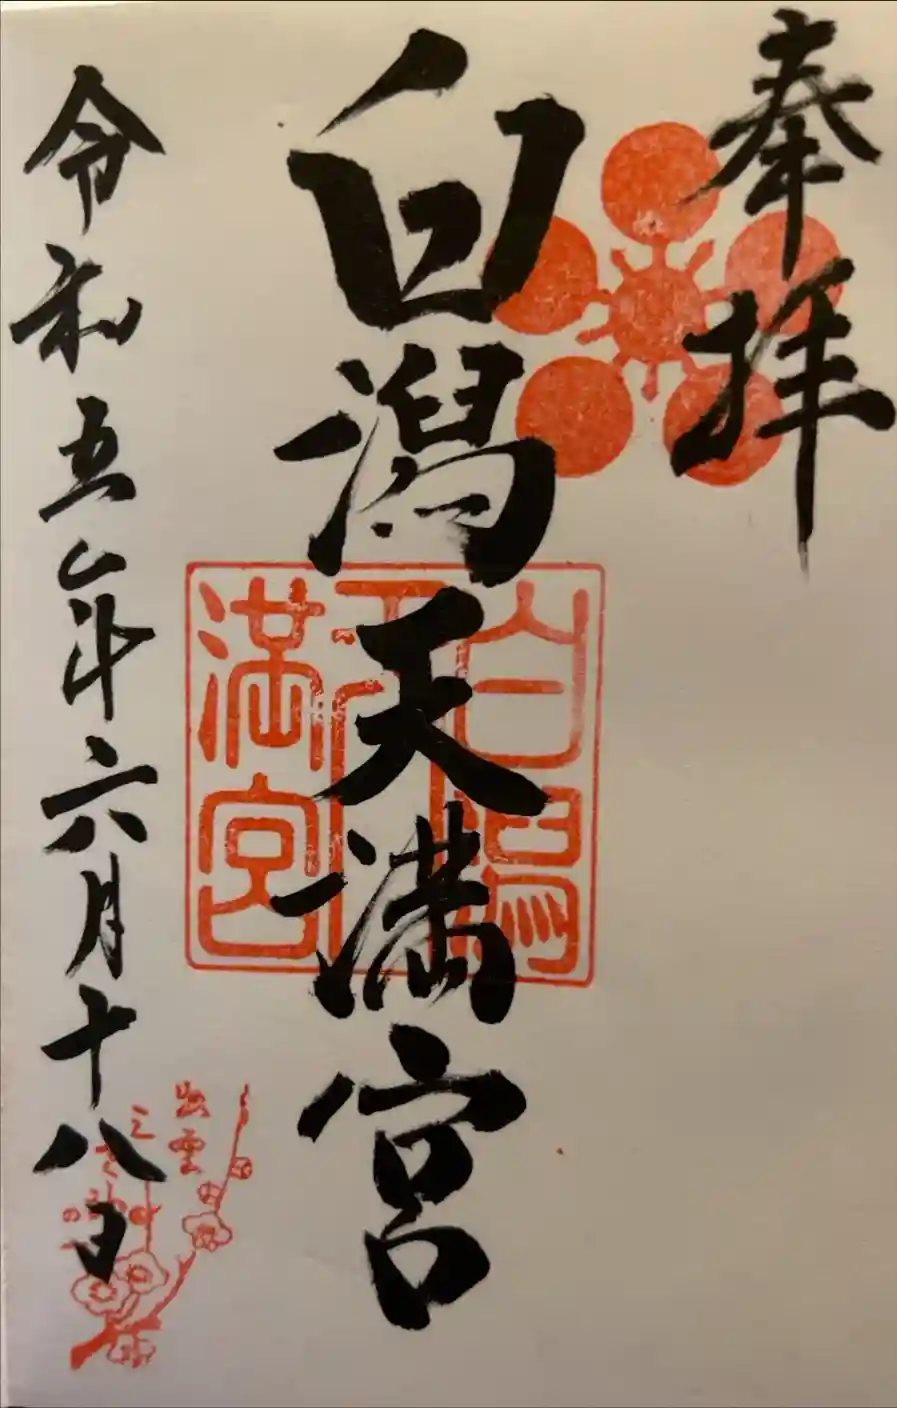 奉拝
白潟天満宮
白潟
天
満宮
令和五年六月十八日
出雲